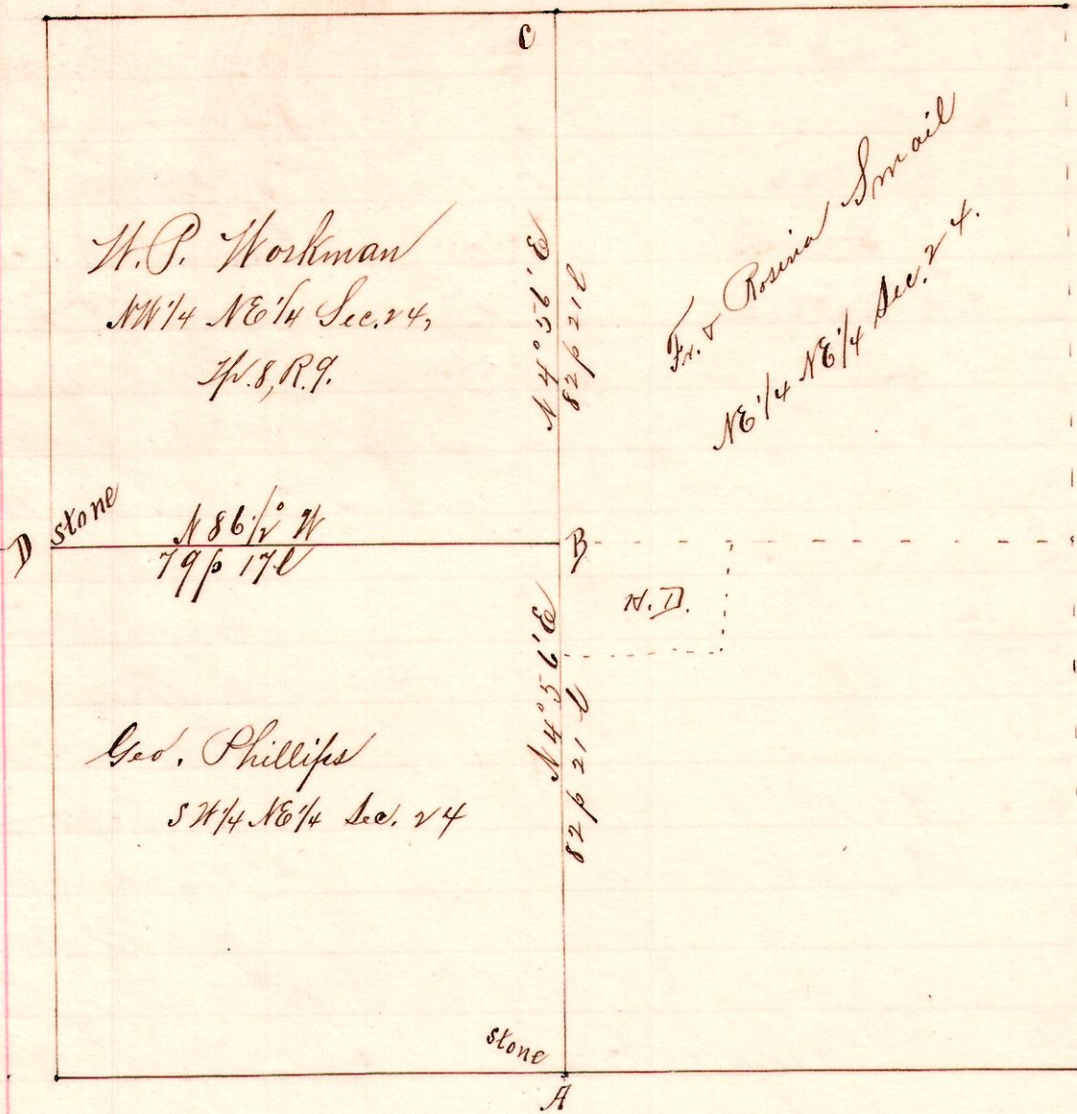 C
W. P. Workman
NW 1/4 NE 1/4 Sec. 24,
Tp. 8, R. 9.
N 4° 56' E
82 p 21 l
Fr. & Rosina Smail
NE 1/4 NE 1/4 Sec. 24.
D
stone
N 86 1/2° W
79 p 17 l
B
H. D.
N 4° 56' E
82 p 21 l
Geo. Phillips
SW 1/4 NE 1/4 Sec. 24
stone
A